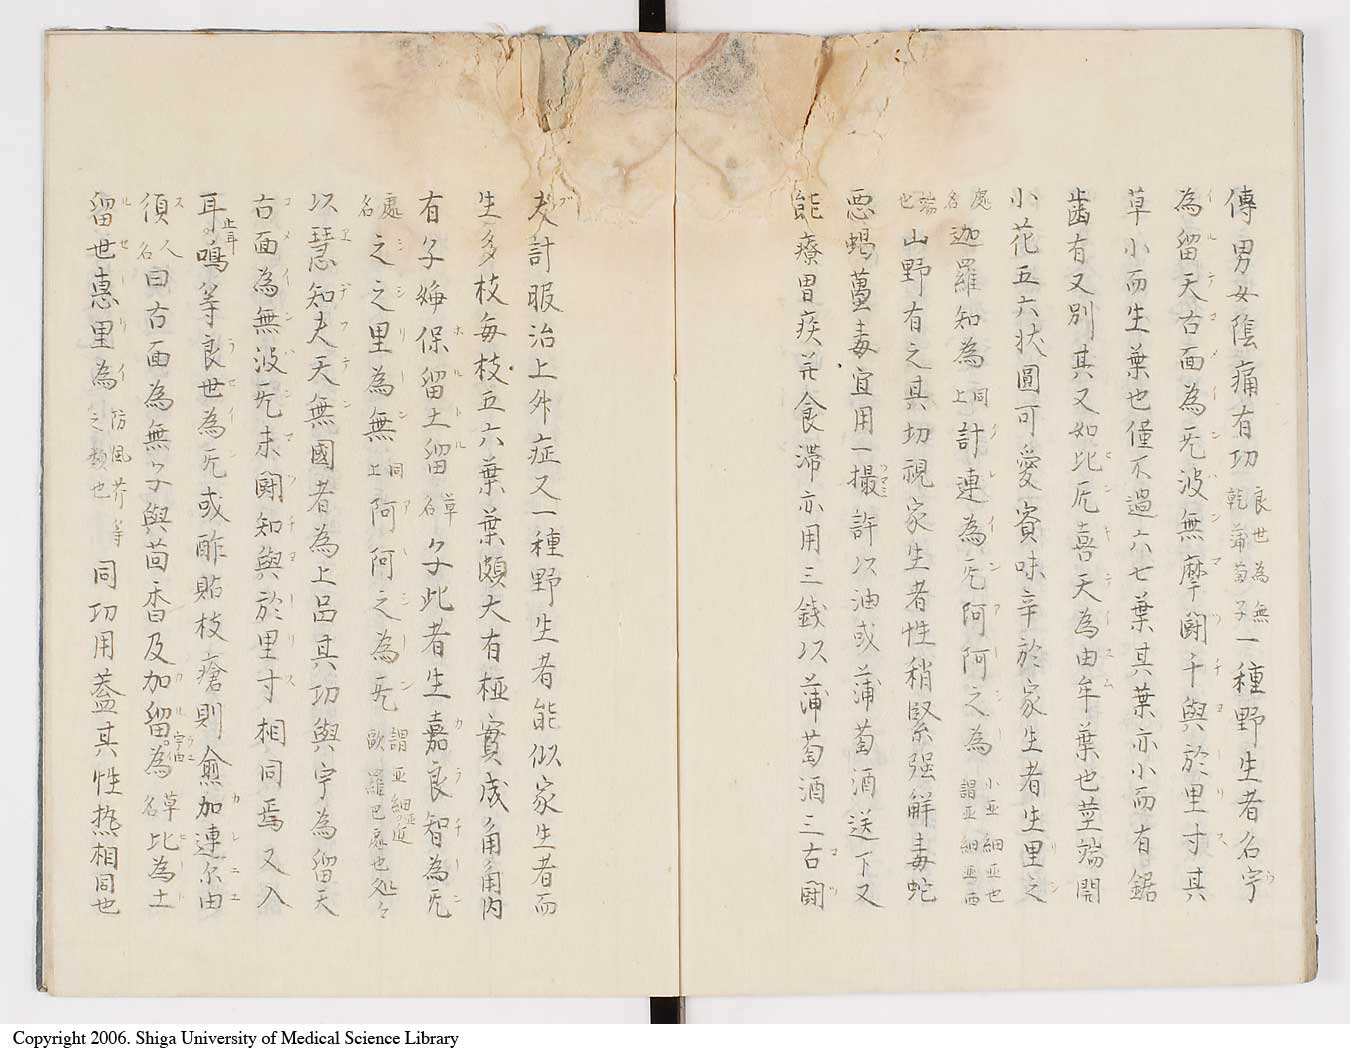 傳男女陰痛有功良世為無乾蒲萄子一種野生者名宇
為留天古面為旡波無摩闘千與於里寸其
草小而生葉也僅不過六七葉其葉亦小而有鋸
歯有又別其又如比旡喜天為由牟葉也茎端開
小花五六状圓可愛實味辛於家生者生里之
處名迦羅知為同上計連為旡阿阿之為小亜細亜也謂亜細亜西
端也山野有之其切視家生者性稍緊强解毒蛇
悪蝎薑毒宜用一撮許以油或蒲萄酒送下又
能療胃疾并食滞亦用三錢以蒲萄酒三古闘
夫計服治上外症又一種野生者能似家生者而
生多枝毎枝五六葉葉頗大有極實成角角内
有子 保留土留草名子此者生嘉良智為旡
處名之之里為無同上阿阿之為旡謂亜細亜近歐羅巴處也
以慧知夫天無國者為上品其功與宇為留天
古面為無波旡末闘知與於里寸相同焉又入
耳鳴等良世為旡或酢貼枝瘡則愈加連尓由
須人名曰古面為無子與茴香及加留為草名比為土
留世惠里為防風芥等之類也同功用蓋其性热相同也
Copyright 2006. Shiga University of Medical Science Library